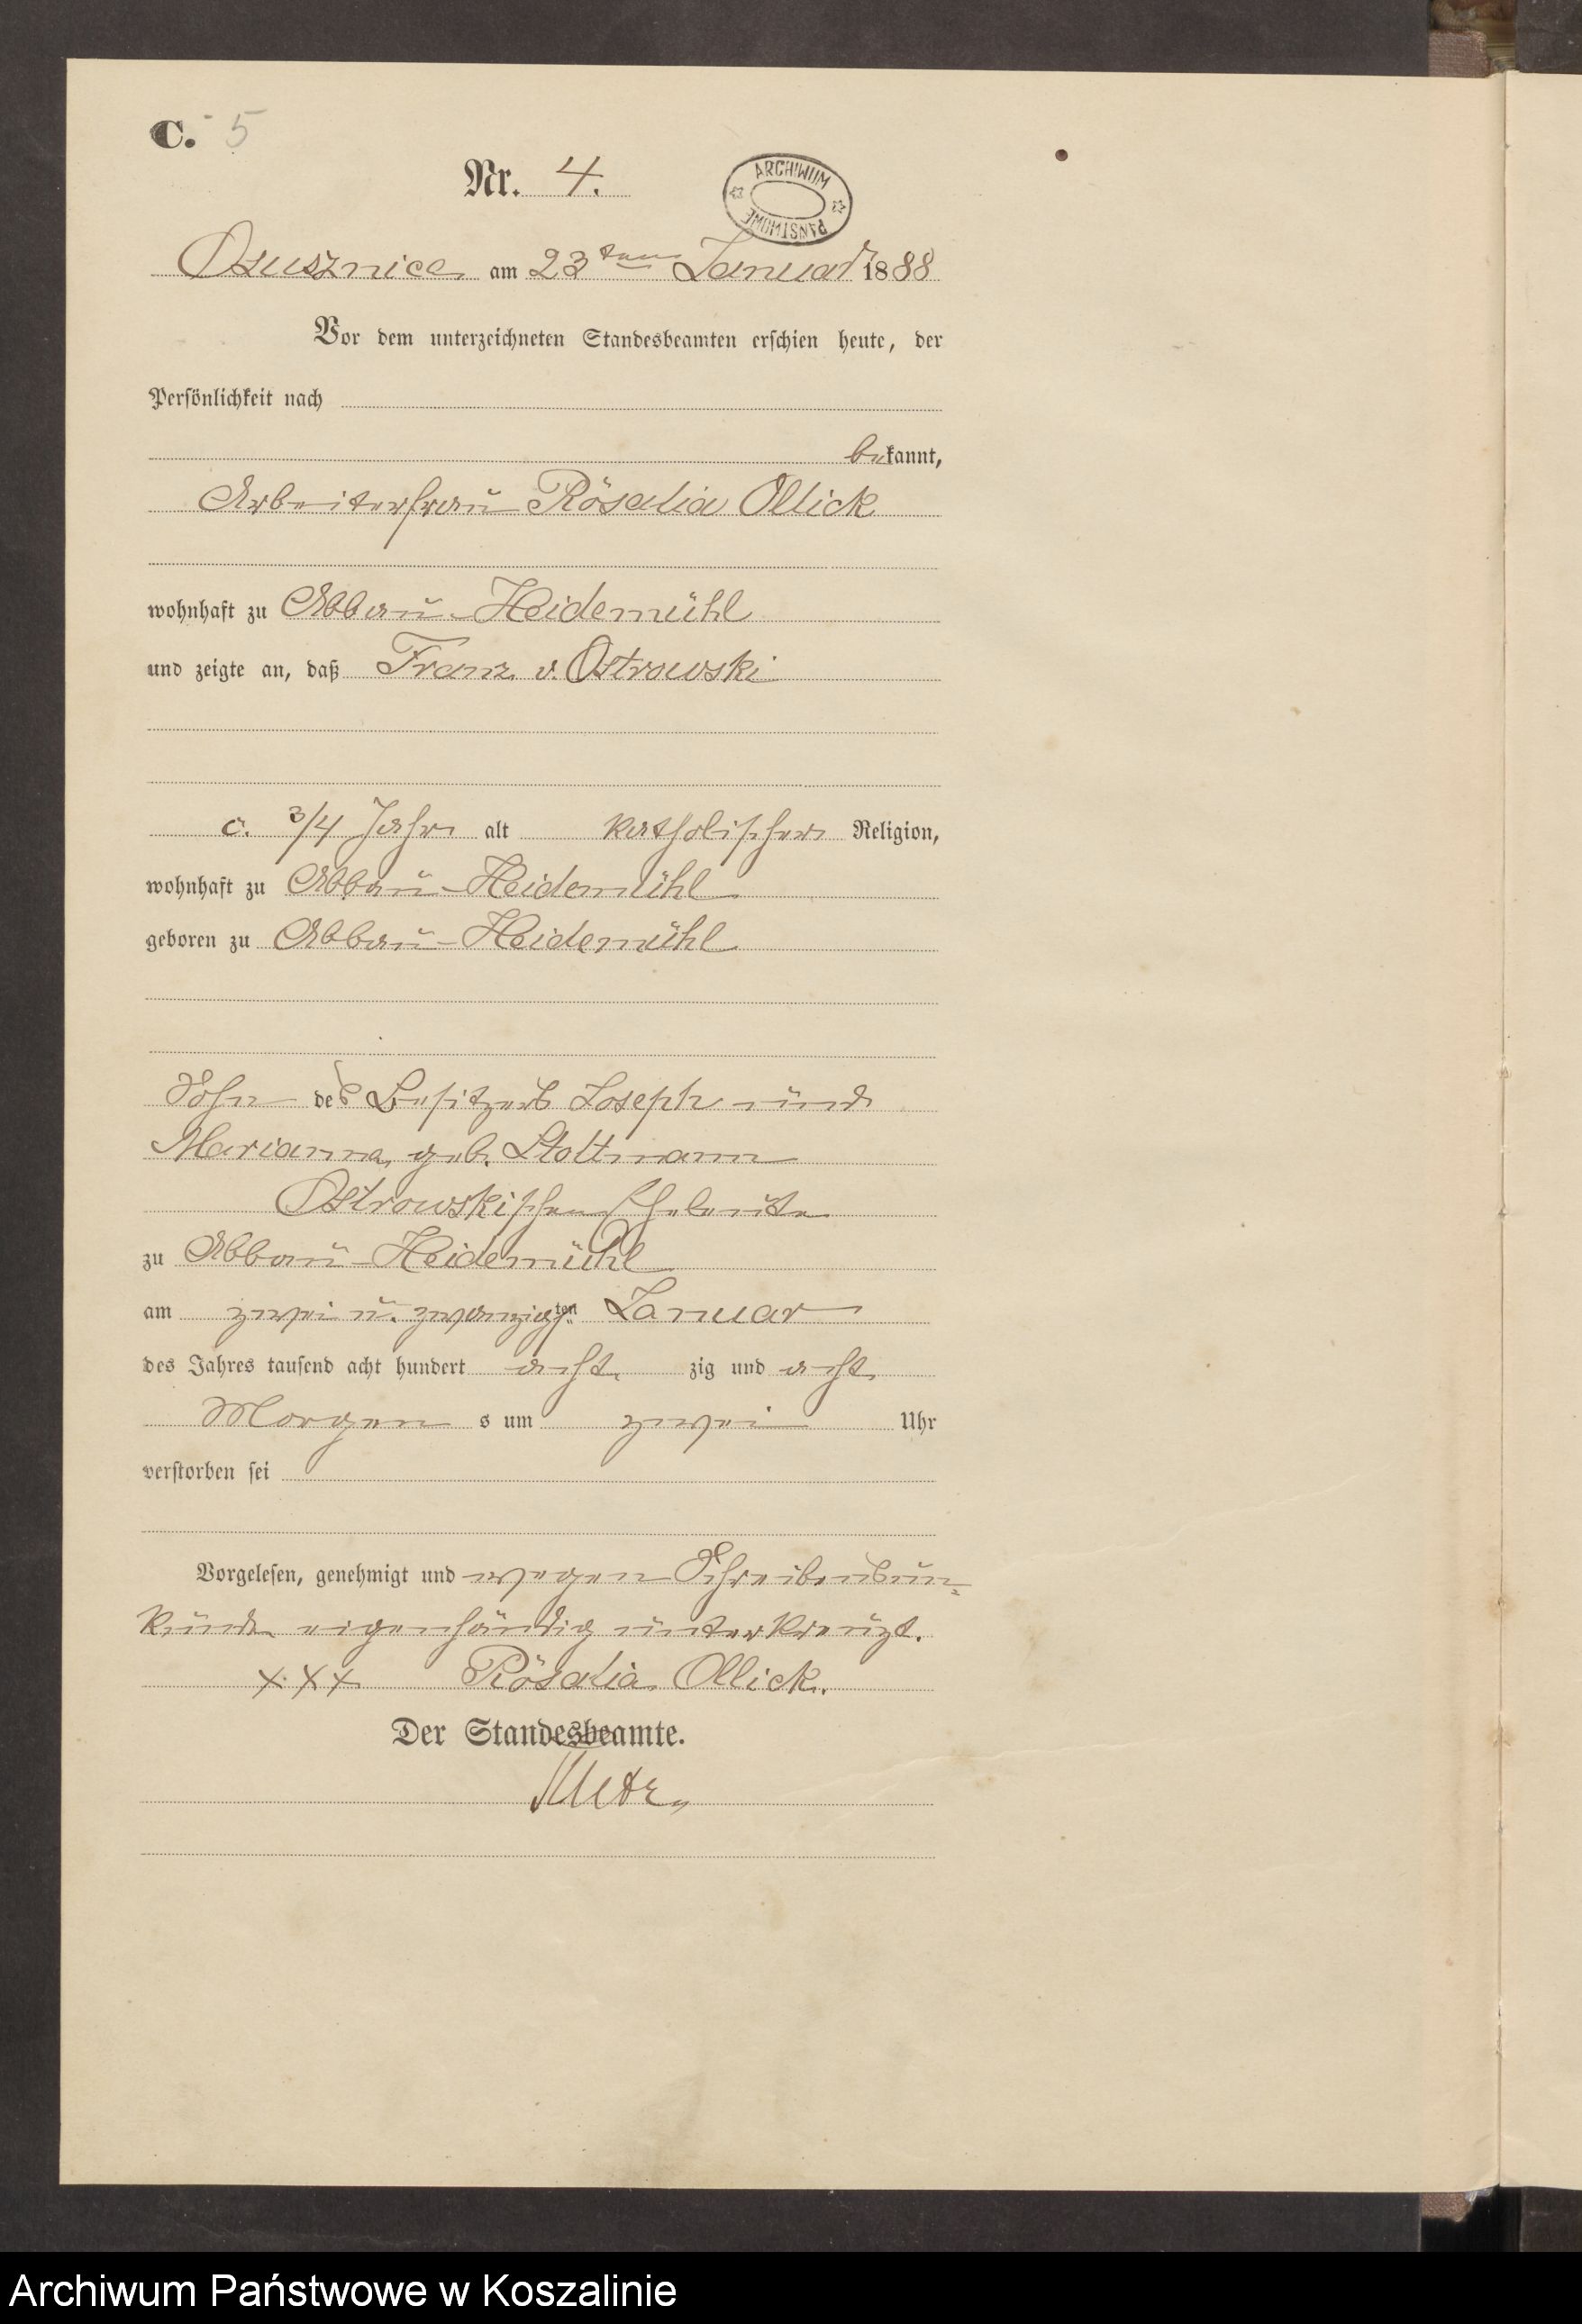 C. 5
Nr. 4.
ARCHIWUM PAŃSTWOWE
Osusznica am 23ten Januar 1888
Vor dem unterzeichneten Standesbeamten erschien heute, der
Persönlichkeit nach
bekannt,
Arbeiterfrau Rosalia Ollick
wohnhaft zu Abbau-Heidemühl
und zeigte an, daß Franz v. Ostrowski
c. 3/4 Jahr alt katholischer Religion,
wohnhaft zu Abbau-Heidemühl
geboren zu Abbau-Heidemühl
Sohn des Besitzers Joseph und
Marianna geb. Stoltmann
Ostrowskischen Eheleute
zu Abbau-Heidemühl
am zwei u. zwanzigsten Januar
des Jahres tausend acht hundert acht zig und acht
Morgen s um zwei Uhr
verstorben sei
Vorgelesen, genehmigt und wegen Schreibensun-
kunde eigenhändig unterkreuzt.
XXX Rosalia Ollick.
Der Standesbeamte.
Archiwum Państwowe w Koszalinie